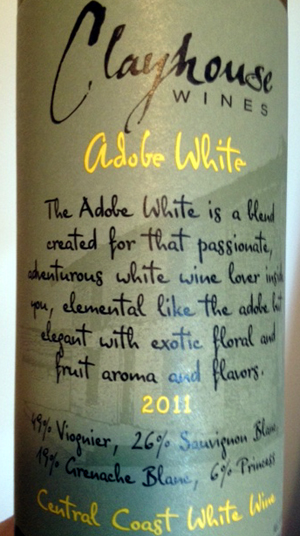 Clayhouse
WINES
Adobe White
The Adobe White is a blend
created for that passionate,
adventurous white wine lover inside
you, elemental like the adobe but
elegant with exotic floral and
fruit aroma and flavors.
2011
49% Viognier, 26% Sauvignon Blanc,
19% Grenache Blanc, 6% Princess
Central Coast White Wine